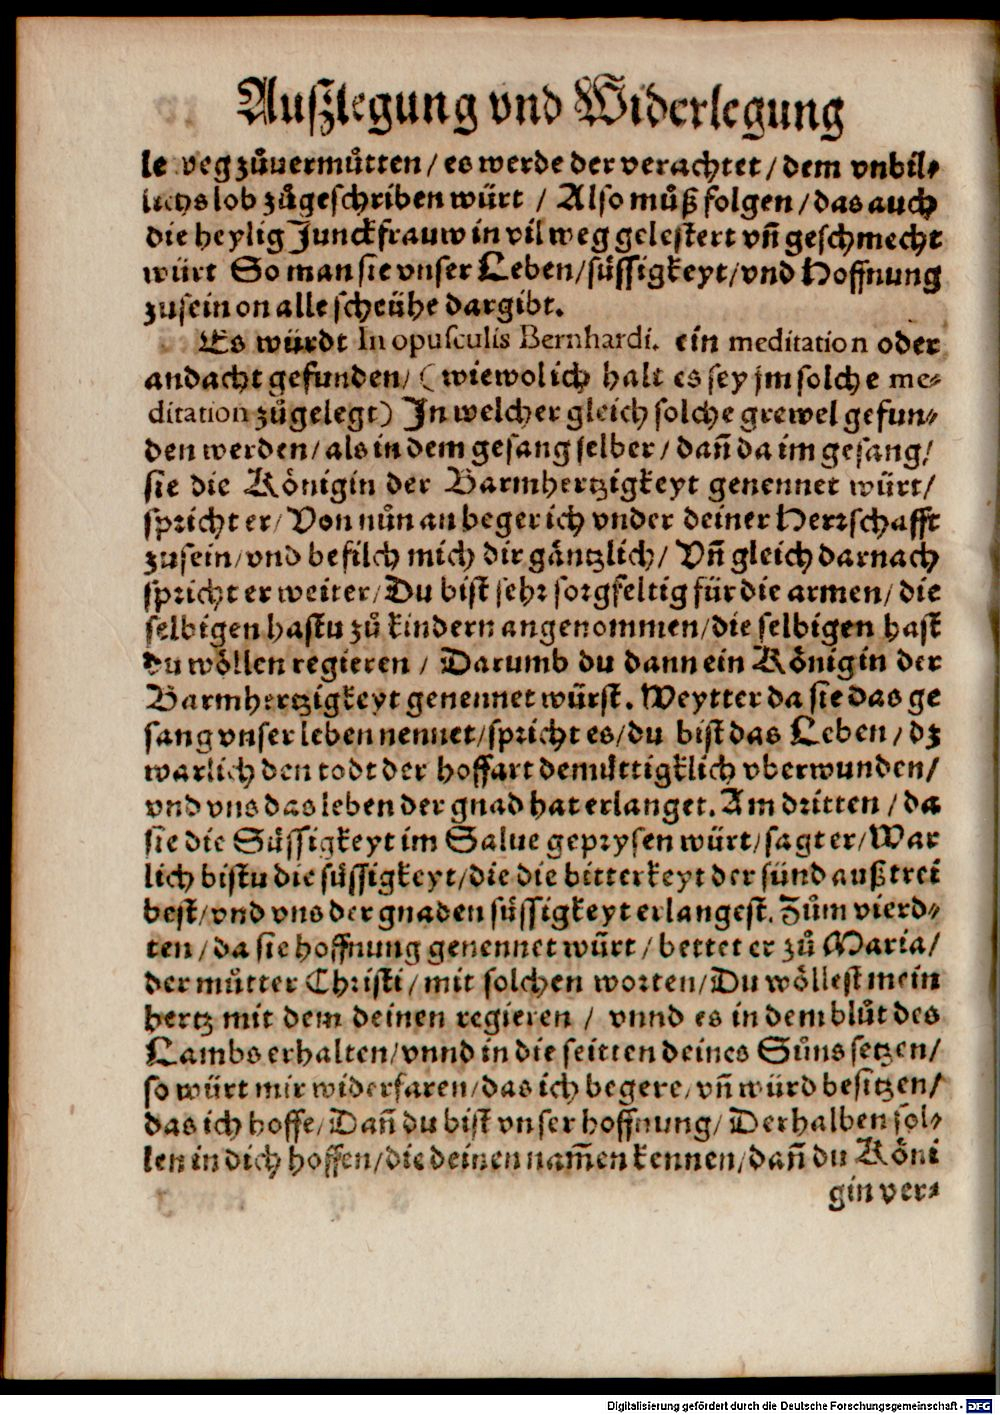 Auſzlegung vnd Widerlegung
le weg zůuermůtten / es werde der verachtet / dem vnbil⸗
lichs lob zůgeschriben würt / Also můß folgen / das auch
die heylig Junckfrauw in vil weg gelestert vñ geschmecht
würt So man sie vnser Leben / süssigkeyt / vnd Hoffnung
zusein on alle scheühe dargibt.
Es würdt In opusculis Bernhardi. ein meditation oder
andacht gefunden / ( wiewol ich halt es sey jm solche me⸗
ditation zůgelegt) In welcher gleich solche grewel gefun⸗
den werden / als in dem gesang selber / dañ da im gesang /
sie die Königin der Barmhertzigkeyt genennet würt /
spricht er / Von nůn an beger ich vnder deiner Herrschafft
zusein / vnd befilch mich dir gäntzlich / Vñ gleich darnach
spricht er weiter / Du bist sehr sorgfeltig für die armen / die
selbigen hastu zů kindern angenommen / die selbigen hast
du wöllen regieren / Darumb du dann ein Königin der
Barmhertzigkeyt genennet würst. Weytter da sie das ge
sang vnser leben nennet / spricht es / du bist das Leben / dz
warlich den todt der hoffart demüttigklich vberwunden /
vnd vns das leben der gnad hat erlanget. Am dritten / da
sie die Süssigkeyt im Salue geprysen würt / sagt er / War
lich bistu die süssigkeyt / die die bitterkeyt der sünd außtrei
best / vnd vns der gnaden süssigkeyt erlangest. Zům vierd⸗
ten / da sie hoffnung genennet würt / bettet er zů Maria /
der můtter Christi / mit solchen worten / Du wöllest mein
hertz mit dem deinen regieren / vnnd es in dem blůt des
Lambs erhalten / vnnd in die seitten deines Süns setzen /
so würt mir widerfaren / das ich begere / vñ würd besitzen /
das ich hoffe / Dañ du bist vnser hoffnung / Derhalben sol⸗
len in dich hoffen / die deinen nam̃en kennen / dañ du Köni
gin ver⸗
Digitalisierung gefördert durch die Deutsche Forschungsgemeinschaft - DFG